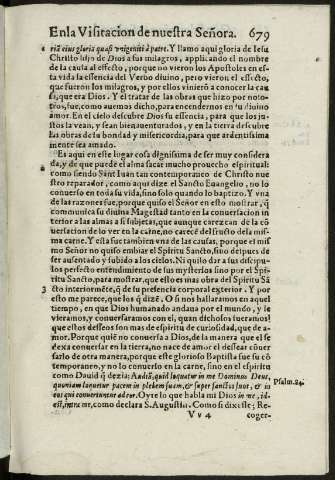 Enla Visitacion de nuestra Señora. 679
riã eius gloriã quasi vnigeniti à patre. Y llamo aqui gloria de Iesu
Christo hijo de Dios a sus milagros, applicando el nombre
de la causa al effecto, porque no vieron los Apostoles en es-
ta vida la essencia del Verbo diuino, pero vieron el effecto,
que fueron los milagros, y por ellos vinierõ a conocer la cau
sa, que era Dios. Y el tratar de las obras que hizo por noso-
tros, fue, como auemos dicho, para encendernos en su diuino
amor. En el cielo descubre Dios su essencia, para que los ju-
stos la vean, y sean bienauenturados, y en la tierra descubre
las obras de la bondad y misericordia, para que ardentissima
mente sea amado.
Es aqui en este lugar cosa dignissima de ser muy considera
da, y de que puede el alma sacar mucho prouecho espiritual:
como siendo Sant Iuan tan contemporaneo de Christo nue
stro reparador, como aqui dize el Sancto Euangelio, no lo
conuerso en toda su vida, sino solo quando lo baptizo. Y vna
de las razones fue, porque quiso el Señor en esto mostrar, q̃
communica su diuina Magestad tanto en la conuersacion in
terior a las almas a si subjetas, que aunque carezcan de la cõ
uersacion de lo ver en la carne, no carecẽ del fructo de la mis
ma carne. Y esta fue tambien vna de las causas, porque el mis
mo Señor no quiso embiar el Spiritu Sancto, sino despues de
ser ausentado y subido a los cielos. Ni quiso dar a sus discipu
los perfecto entendimiento de sus mysterios sino por el Spi-
ritu Sancto, para mostrar, que esto es mas obra del Spiritu Sã
cto interiormẽte, q̃ de su presencia corporal exterior. Y por
esto me parece, que los q̃ dizẽ. O si nos hallaramos en aquel
tiempo, en que Dios humanado andaua por el mundo, y le
vieramos, y conuersaramos con el, quan dichosos fueramos!
que estos desseos son mas de espiritu de curiosidad, que de a-
mor. Porque quiẽ no conuersa a Dios, de la manera que el se
dexa conuersar en la tierra, no nace de amor el dessear cõuer
sarlo de otra manera, porque este glorioso Baptista fue su cõ
temporaneo, y no lo conuerso en la carne, sino en el espiritu
como Dauid q̃ dezia: Audiã, quid loquatur in me Dominus Deus,
quoniam loquetur pacem in plebem suam, & super sanctos suos, & in
eos qui conuertuntur ad cor. Oyre lo que habla mi Dios in me, id-
est, intra me, como declara S. Augustin. Como si dixesse; Re-
Psalm. 24.
3
V v 4 coger-